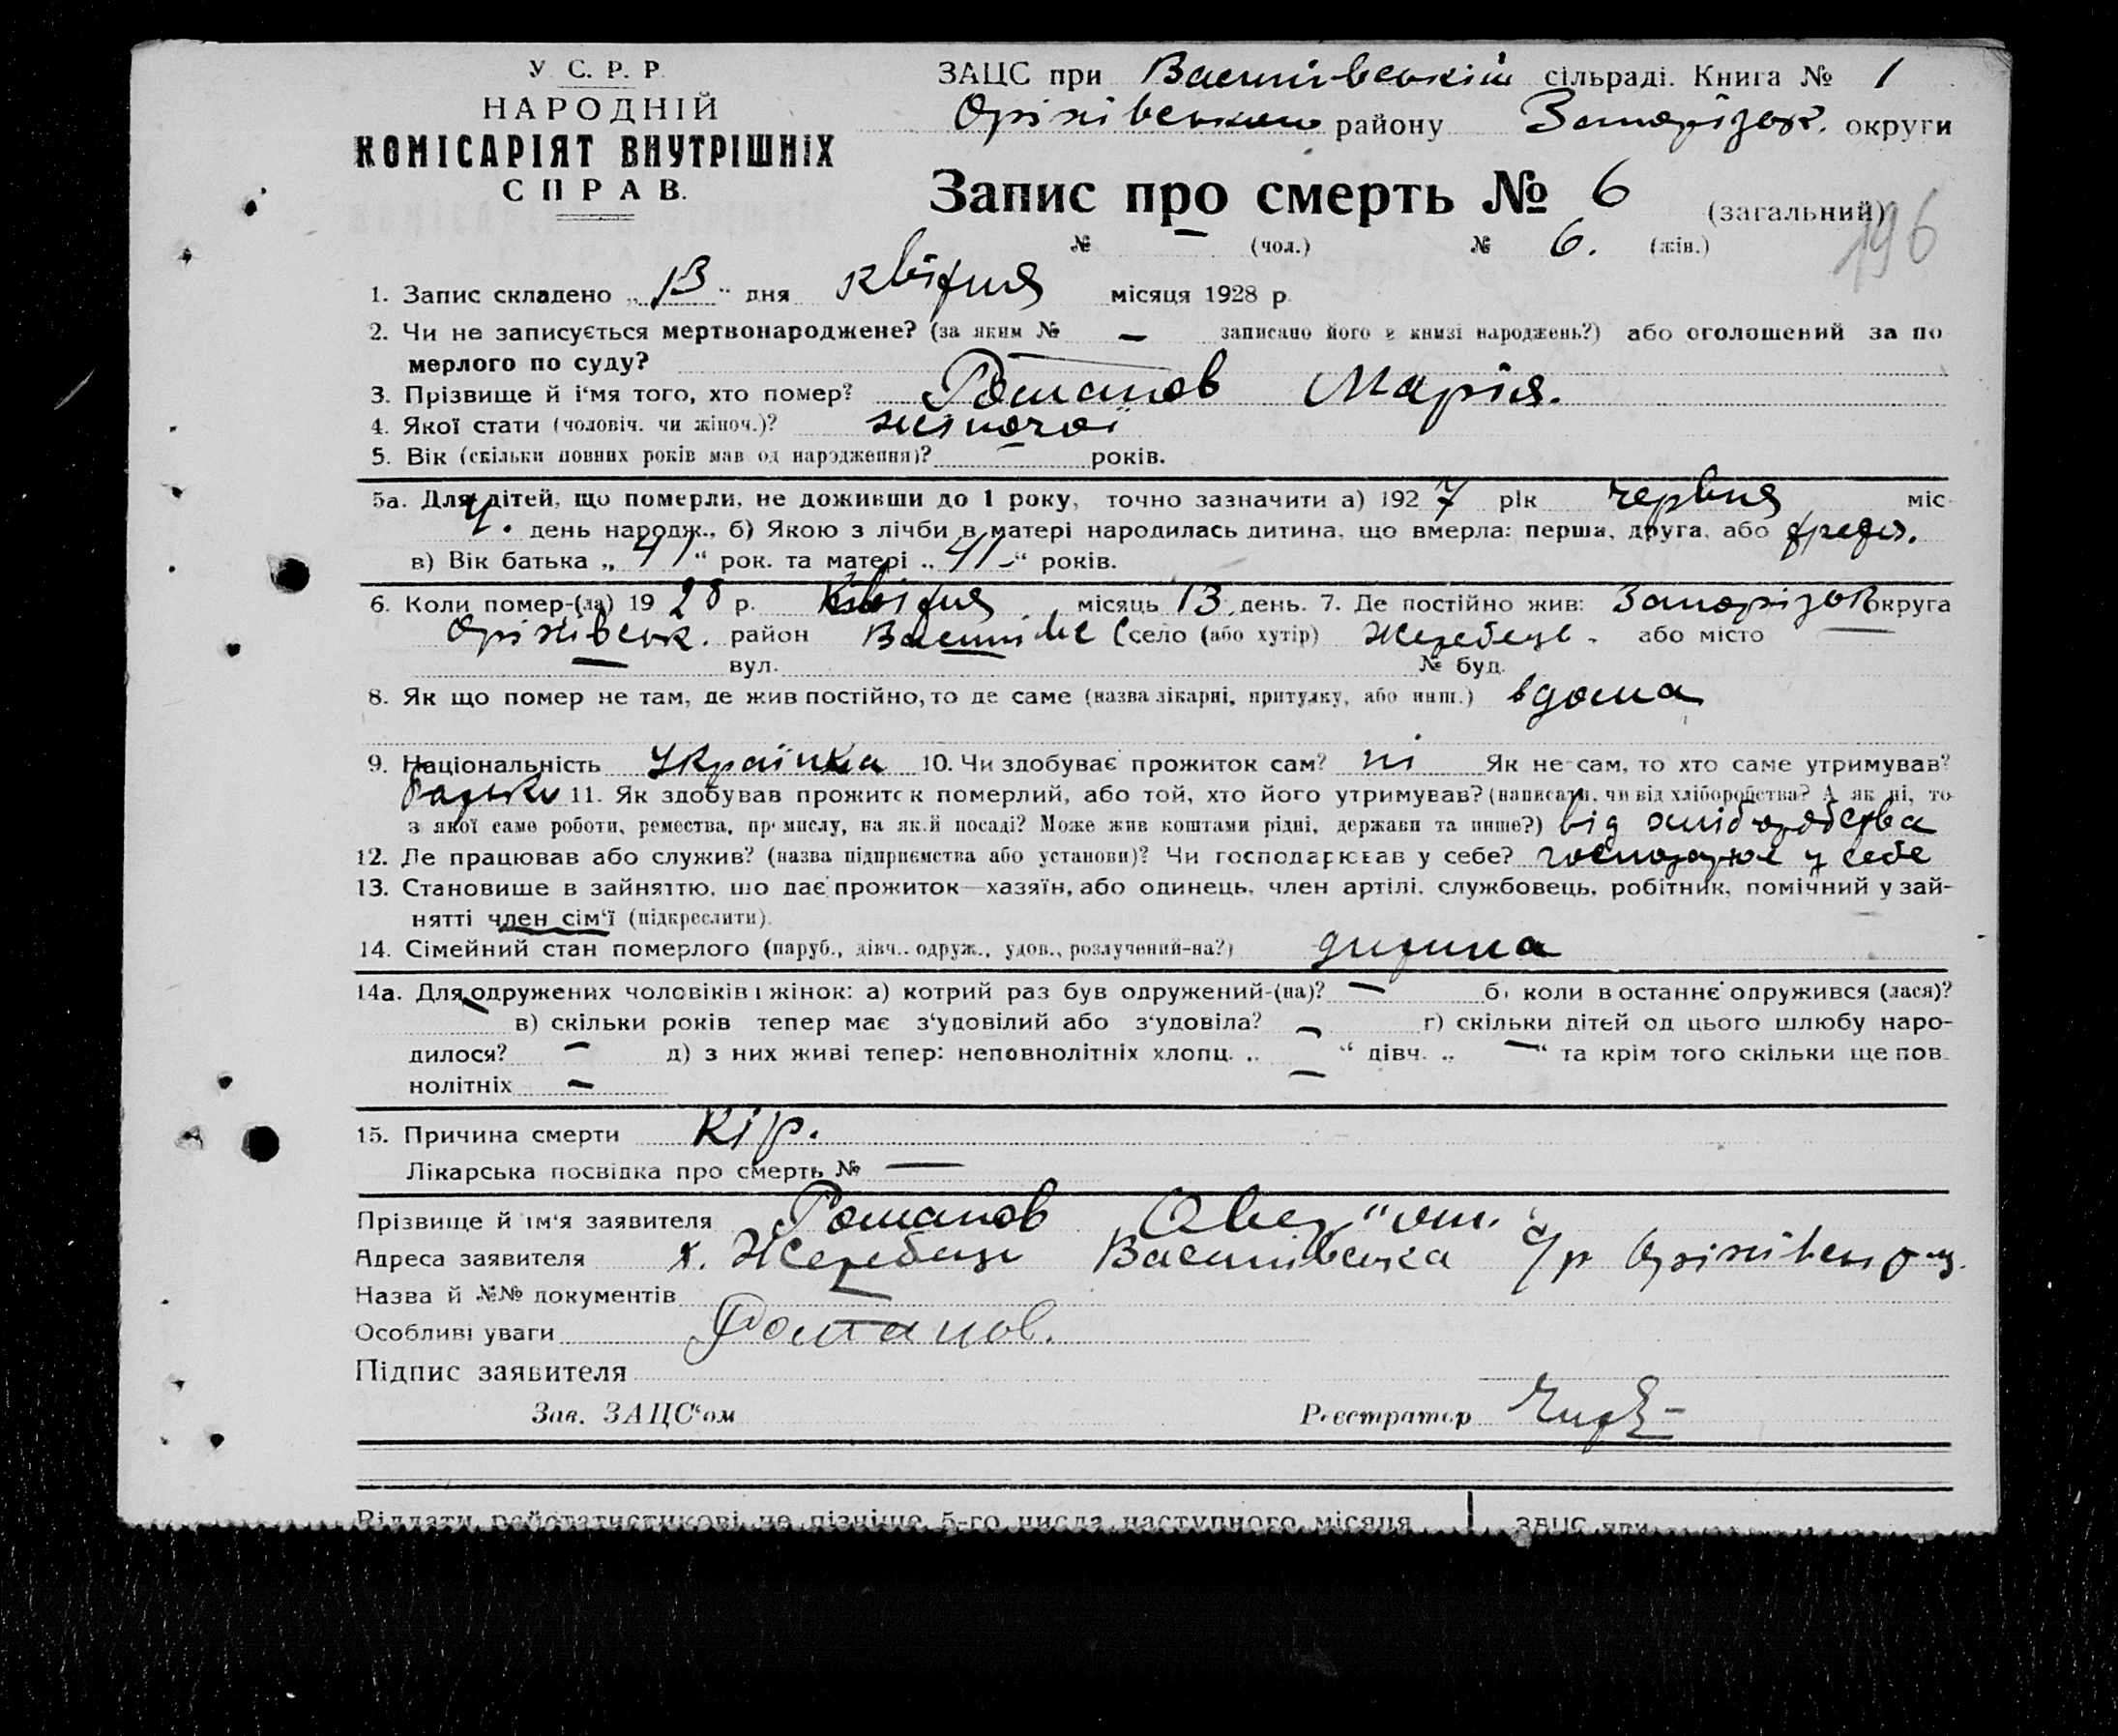 У. С. Р. Р.
НАРОДНІЙ
КОМІСАРІЯТ ВНУТРІШНІХ
СПРАВ.
ЗАЦС при Василівській сільраді. Книга № 1
Оріхівського району Запоріжк. округи
Запис про смерть № 6 (загальний)
196
№ — (чол.) № 6. (жін.)
1. Запис складено „13“ дня квітня місяця 1928 р.
2. Чи не записується мертвонароджене? (за яким № — записано його в книзі народжень?) або оголошений за по
мерлого по суду?
3. Прізвище й і'мя того, хто помер? Романов Марія.
4. Якої стати (чоловіч. чи жіноч.)? жіночої
5. Вік (скільки повних років мав од народження)? — років.
5а. Для дітей, що померли, не доживши до 1 року, точно зазначити а) 1927 рік червня міс
день народж., б) Якою з лічби в матері народилась дитина, що вмерла: перша, друга, або третя.
в) Вік батька „41“ рок. та матері „41“ років.
6. Коли помер-(ла) 1928 р. квітня місяць 13 день. 7. Де постійно жив: Запоріжок округа
Оріхівськ. район село (або хутір) Жеребець. або місто —
— вул. № буд.
8. Як що помер не там, де жив постійно, то де саме (назва лікарні, притулку, або инш.) вдома
9. Національність Українка 10. Чи здобуває прожиток сам? ні Як не сам, то хто саме утримував?
батько 11. Як здобував прожиток померлий, або той, хто його утримував? (написати, чи від хліборобства? А як ні, то
з якої саме роботи, ремества, промислу, на якій посаді? Може жив коштами рідні, держави та инше?) від хліборобства
12. Де працював або служив? (назва підприємства або установи)? Чи господарював у себе? господарює у себе
13. Становище в зайняттю, що дає прожиток—хазяїн, або одинець, член артілі, службовець, робітник, помічний у зай-
нятті член сім'ї (підкреслити).
14. Сімейний стан померлого (паруб., дівч., одруж., удов., розлучений-на?) дитина
14а. Для одружених чоловіків і жінок: а) котрий раз був одружений-(на)? — б) коли востаннє одружився (лася)?
— в) скільки років тепер має з'удовілий або з'удовіла? — г) скільки дітей од цього шлюбу наро-
дилося? — д) з них живі тепер: неповнолітніх хлопц. „ — “ дівч. „ — “ та крім того скільки ще пов-
нолітніх —
15. Причина смерти Кір.
Лікарська посвідка про смерть № —
Прізвище й ім'я заявителя Романов
Адреса заявителя х. Жеребець Василівська с/р Оріхівськ р-ну.
Назва й №№ документів —
Особливі уваги Романов.
Підпис заявителя
Зав. ЗАЦС'ом Реєстратор
Віддати райстатистикові не пізніше 5-го числа наступного місяця ЗАЦС при